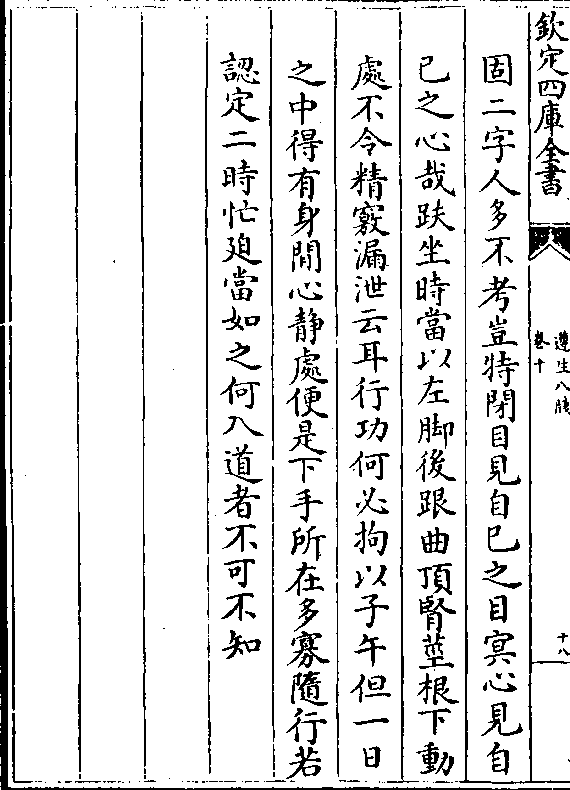 欽定四庫全書
遵生八牋
卷十
十八
固二字人多不考豈特閉目見自己之目冥心見自
己之心哉趺坐時當以左脚後跟曲頂腎莖根下動
處不令精竅漏泄云耳行功何必拘以子午但一日
之中得有身閒心静處便是下手所在多寡隨行若
認定二時忙廹當如之何入道者不可不知